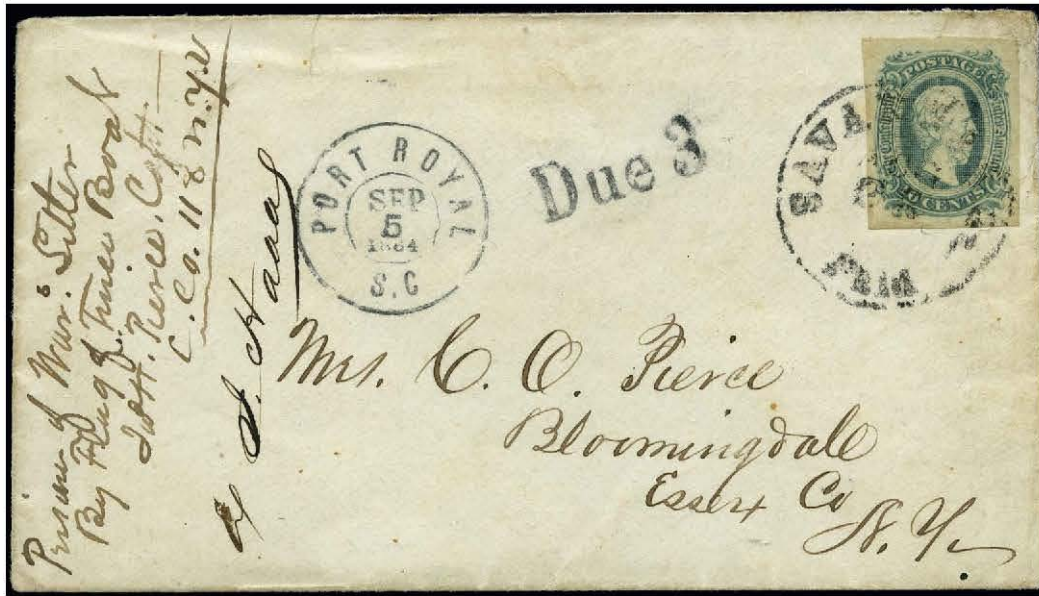 Prisoner of War's Letter
By Flag of Truce Boat
Pierce, Capt.
C. Co. 118 N.Y.V
PORT ROYAL
SEP
5
1864
S.C
Due 3
SAVA
POSTAGE
TEN CENTS
Mrs. C. O. Pierce
Bloomingdale
Essex Co
N. Y.